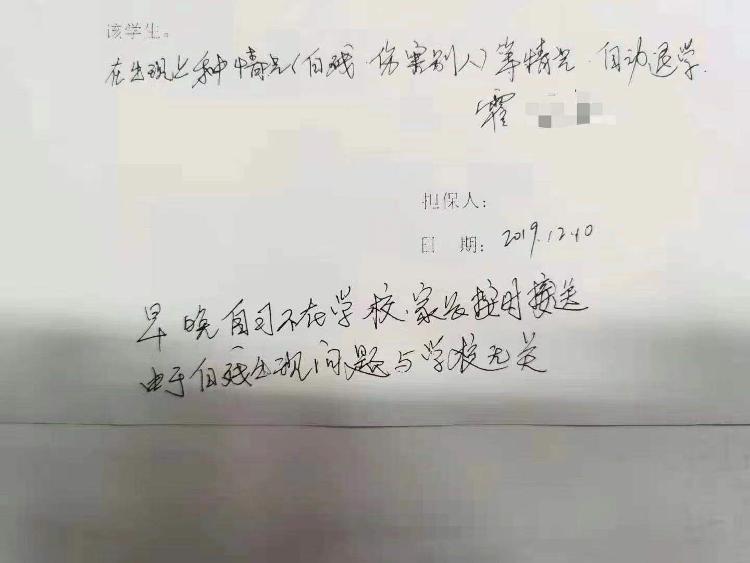 该学生。
在出现上种情况(自残.伤害别人)等情况.自动退学.
霍
担保人:
日 期: 2019.12.10
早晚自习不在学校.家长按时接送
由于自残出现问题与学校无关